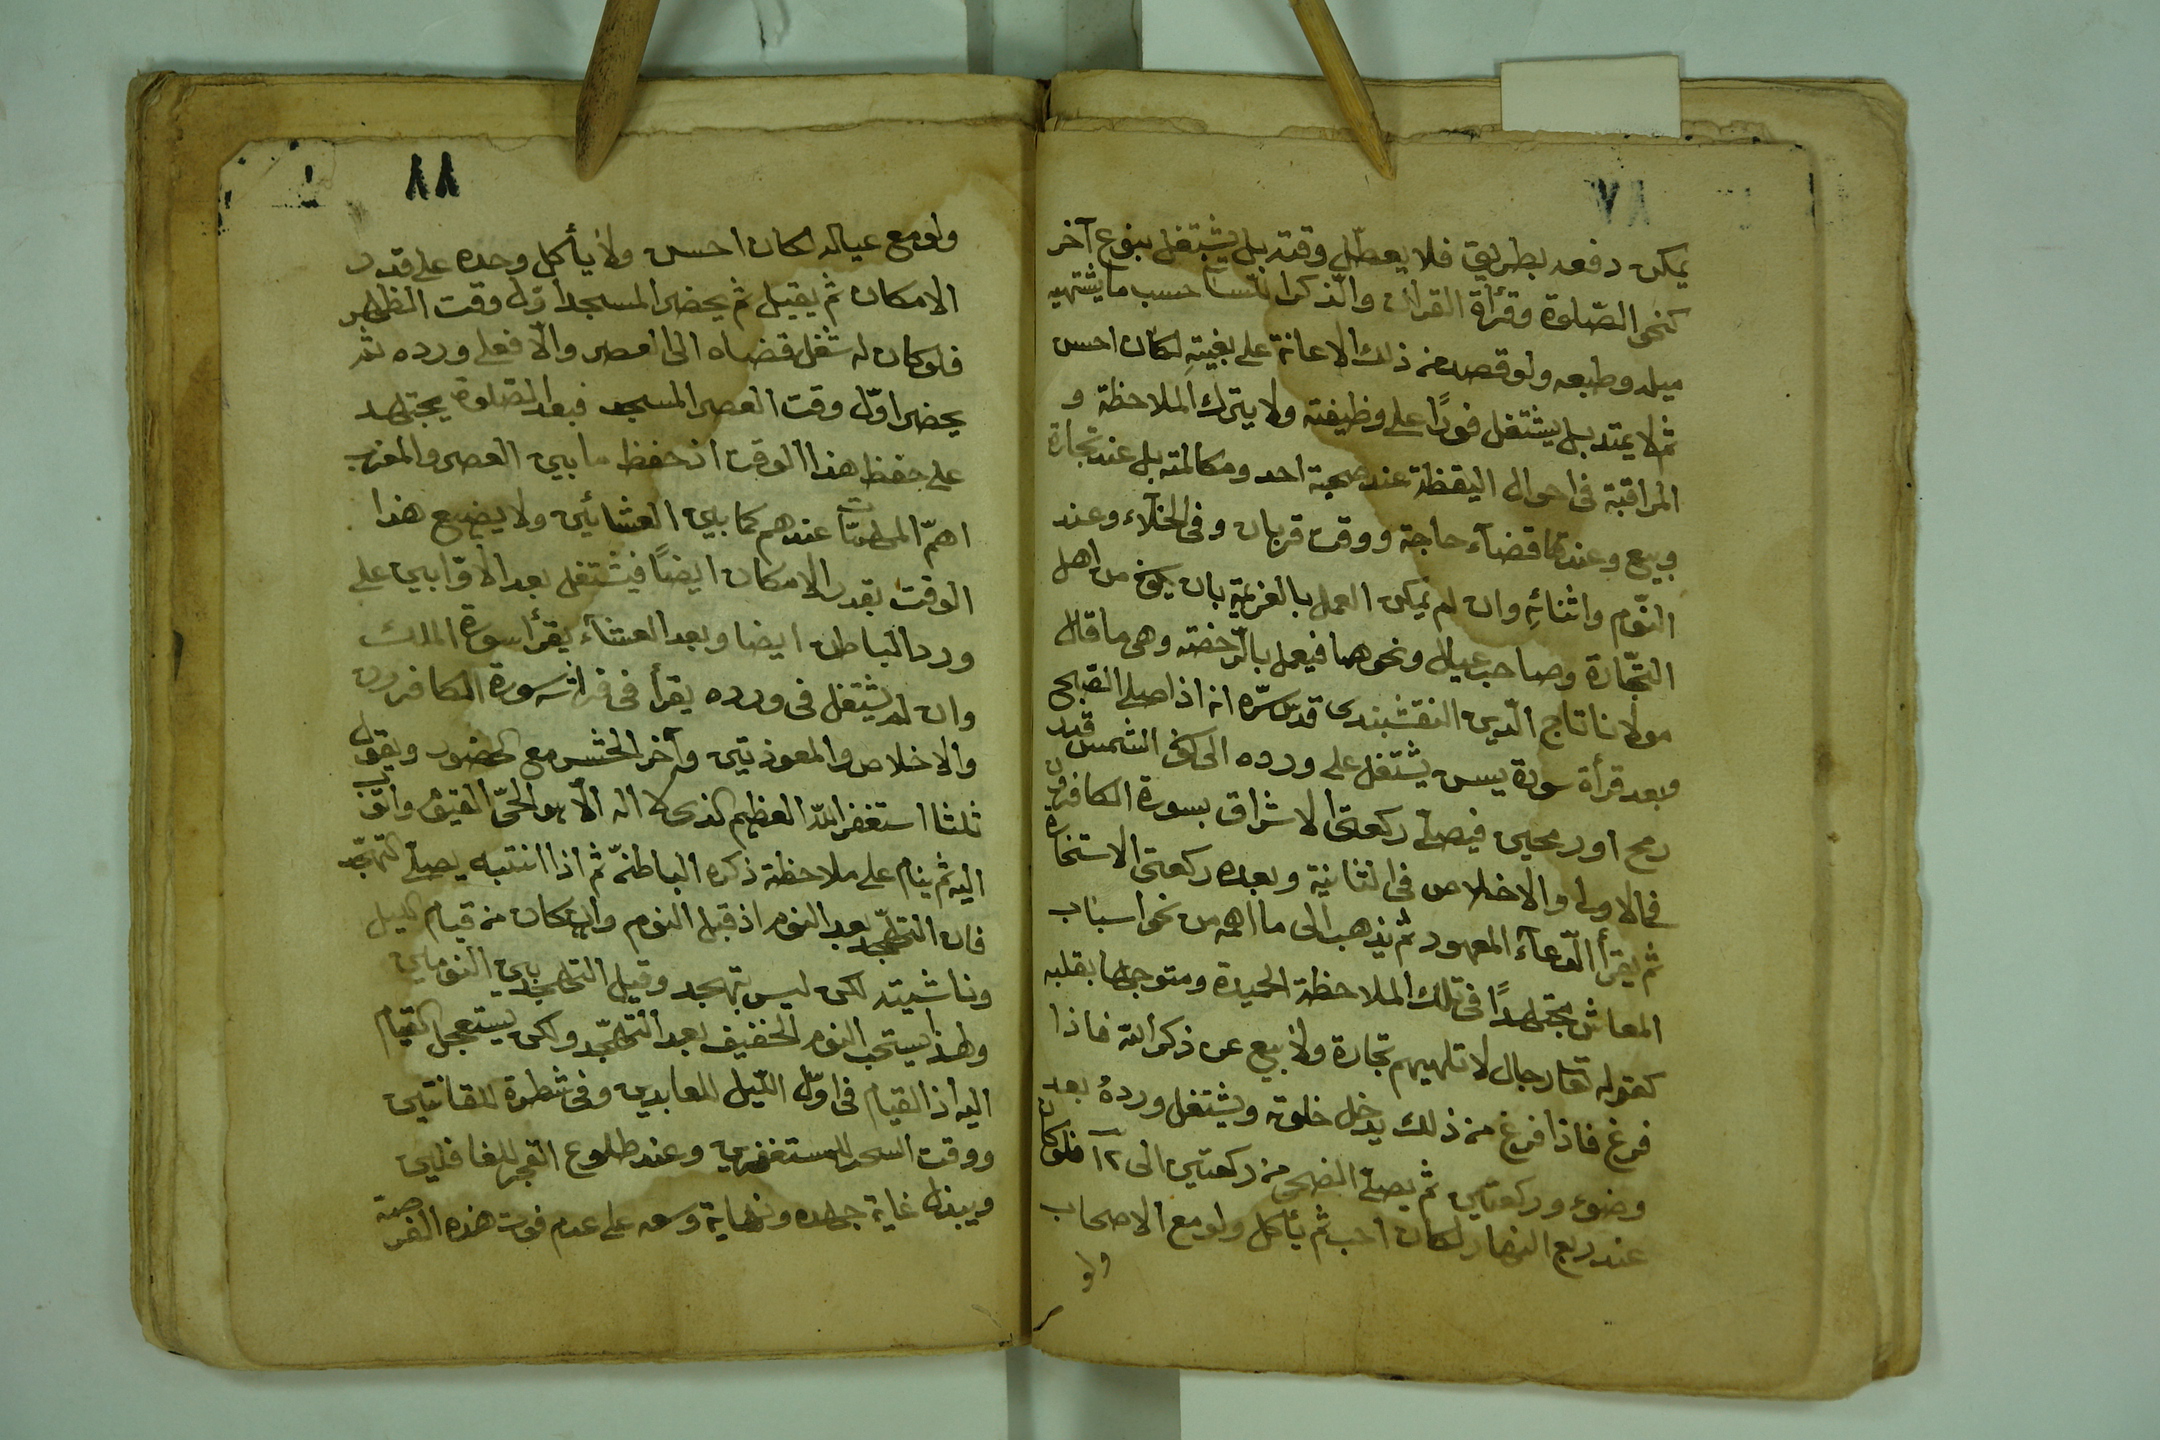 ٨٧
يمكن دفعه بطريق فلا يعطّل وقته بل يشتغل بنوع آخر
كنحو الصّلوة وقرأة القرآن والذكر اللسا حسب ما يشتهيه
ميله وطبعه ولو قصد من ذلك الاعانة على بغيتهِ لكان احسن
ثم لا يمتد بل يشتغل فورًا على وظيفته ولا يترك الملاحظة و
المراقبة فى احوال اليقظة عند صحبة احد ومكالمته بل عند تجارة
وبيع وعند قضآء حاجة ووقت قربان وفى الخلآء وعند
النّوم واثنائهِ وان لم يمكن العمل بالعزيمة بان يكون من اهل
التّجارة وصاحب عيال ونحوهما فيعمل بالرّخصة وهى ما قال
مولانا تاج الدّين النقشبندى قدس سرّه انه اذا صلى الصّبح
وبعد قرأة سورة يس يشتغل على ورده الى كون الشمس قيد
رمح او رمحين فيصلّى ركعتى الاشراق بسورة الكافرون
فى الاولى والاخلاص فى الثانية وبعده ركعتى الاستخارة
ثم يقرأ الدّعآء المعهود ثم يذهب الى ما اهمه من نحو اسباب
المعاش مجتهدًا فى تلك الملاحظة الحميدة ومتوجها بقلبه
كقوله تعا رجال لا تلهيهم تجارة ولا بيع عن ذكر الله فاذا
فرغ فاذا فرغ من ذلك يدخل خلوته ويشتغل وردهُ بعد
وضوء وركعتين ثم يصلّى الضحى من ركعتين الى ١٢ فلو كان
عند ربع النهار لكان احب ثم يأكل ولو مع الاصحاب
ولو
٨٨
ولو مع عياله لكان احسن ولا يأكل وحده على قدر
الامكان ثم يقيل ثم يحضر المسجد اوّل وقت الظهر
فلو كان له شغل قضاه الى العصر والّا فعلى ورده ثم
يحضر اوّل وقت العصر المسجد فبعد الصّلوة يجتهد
على حفظ هذا الوقت اذ حفظ ما بين العصر والمغرب
اهمّ المهمّات عندهم كما بين العشائين ولا يضيع هذا
الوقت بقدر الامكان ايضًا فيشتغل بعد الاوّابين على
ورد الباطن ايضا وبعد العشآء يقرأ سورة الملك
وان لم يشتغل فى ورده يقرأ فى فراشه سورة الكافرون
والاخلاص والمعوذتين وآخر الحشر مع الحضور ويقول
ثلثا استغفر اللّه العظيم الذى لا اله الّا هو الحىّ القيوم واتوب
اليه ثم ينام على ملاحظة ذكره الباطنىّ ثم اذا انتبه يصلى التهجّد
فان التهجّد بعد النوم اذ قبل النوم وان كان من قيام الليل
وناشيته لكن ليس بتهجد وقيل التهجد بين النومين
ولهذا يستحب النوم الخفيف بعد التهجّد ولكن يستعجل القيام
اليه اذ القيام فى اوّل الليل للعابدين وفى شطره للقانتين
ووقت السحر للمستغفرين وعند طلوع الفجر للغافلين
ويبذل غاية جهده ونهاية وسعه على عدم فوت هذه الفرصة